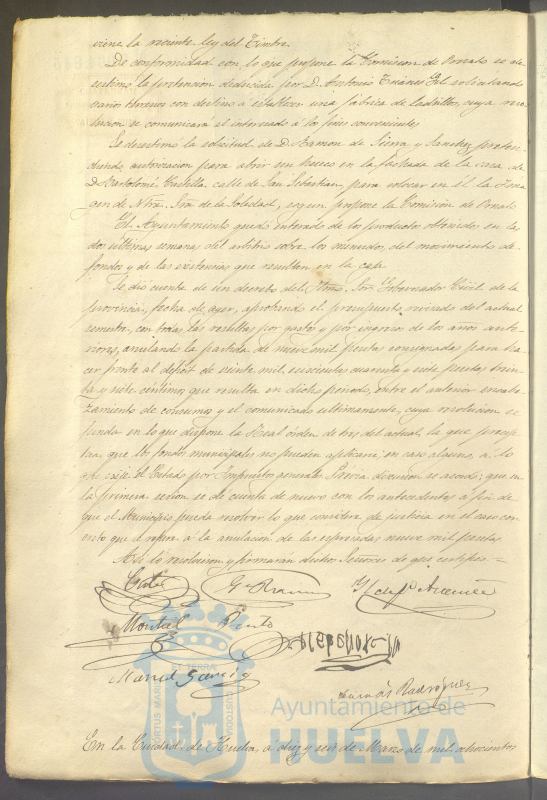 viene la reciente ley del Timbre.
De conformidad con lo que propone la Comision de Ornato se de-
sestimó la pretension deducida por D. Antonio Suarez Gil solicitando
varios terrenos con destino á establecer una fábrica de ladrillos, cuya reso-
lucion se comunicará al interesado á los fines convenientes.
Se desestima la solicitud de D. Ramon de Sierra y Sanchez, preten-
diendo autorizacion para abrir un hueco en la fachada de la casa de
D. Bartolomé Castilla, calle de San Sebastian, para colocar en él la Imá-
gen de Ntra. Sra. de la Soledad, segun propone la Comision de Ornato.
El Ayuntamiento quedó enterado de los productos obtenidos en las
dos últimas semanas del arbitrio sobre los menudos, del movimiento de
fondos y de las existencias que resultan en la caja.
Se dió cuenta de un decreto del Iltmo. Sor. Gobernador Civil de la
provincia, fecha de ayer, aprobando el presupuesto revisado del actual
semestre, con todas las resultas por gastos y por ingresos de los años ante-
riores, anulando la partida de nueve mil pesetas consignadas para ha-
cer frente al déficit de veinte mil seiscientas cuarenta y siete pesetas trein-
ta y siete céntimos que resulta en dicho periodo, entre el anterior encabe-
zamiento de consumos y el comunicado ultimamente, cuya resolucion se
funda en lo que dispone la Real órden de tres del actual, la que precep-
túa, que los fondos municipales no pueden aplicarse en caso alguno, á lo
que exije el Estado por Impuestos generales. Prévia discusion se acordó: que en
la primera sesion se dé cuenta de nuevo con los antecedentes á fin de
que el Municipio pueda resolver lo que considere de justicia en el caso con-
creto que se refiere á la anulacion de las espresadas nueve mil pesetas.
Así lo resolvieron y firmarán dichos Señores de que certifico=
Montiel Pinto
Manuel Garcia
Tomás Rodriguez
PORTUS MARIS ET TERRÆ CUSTODIA
Ayuntamiento de
HUELVA
En la Ciudad de Huelva, á diez y seis de Marzo de mil ochocientos